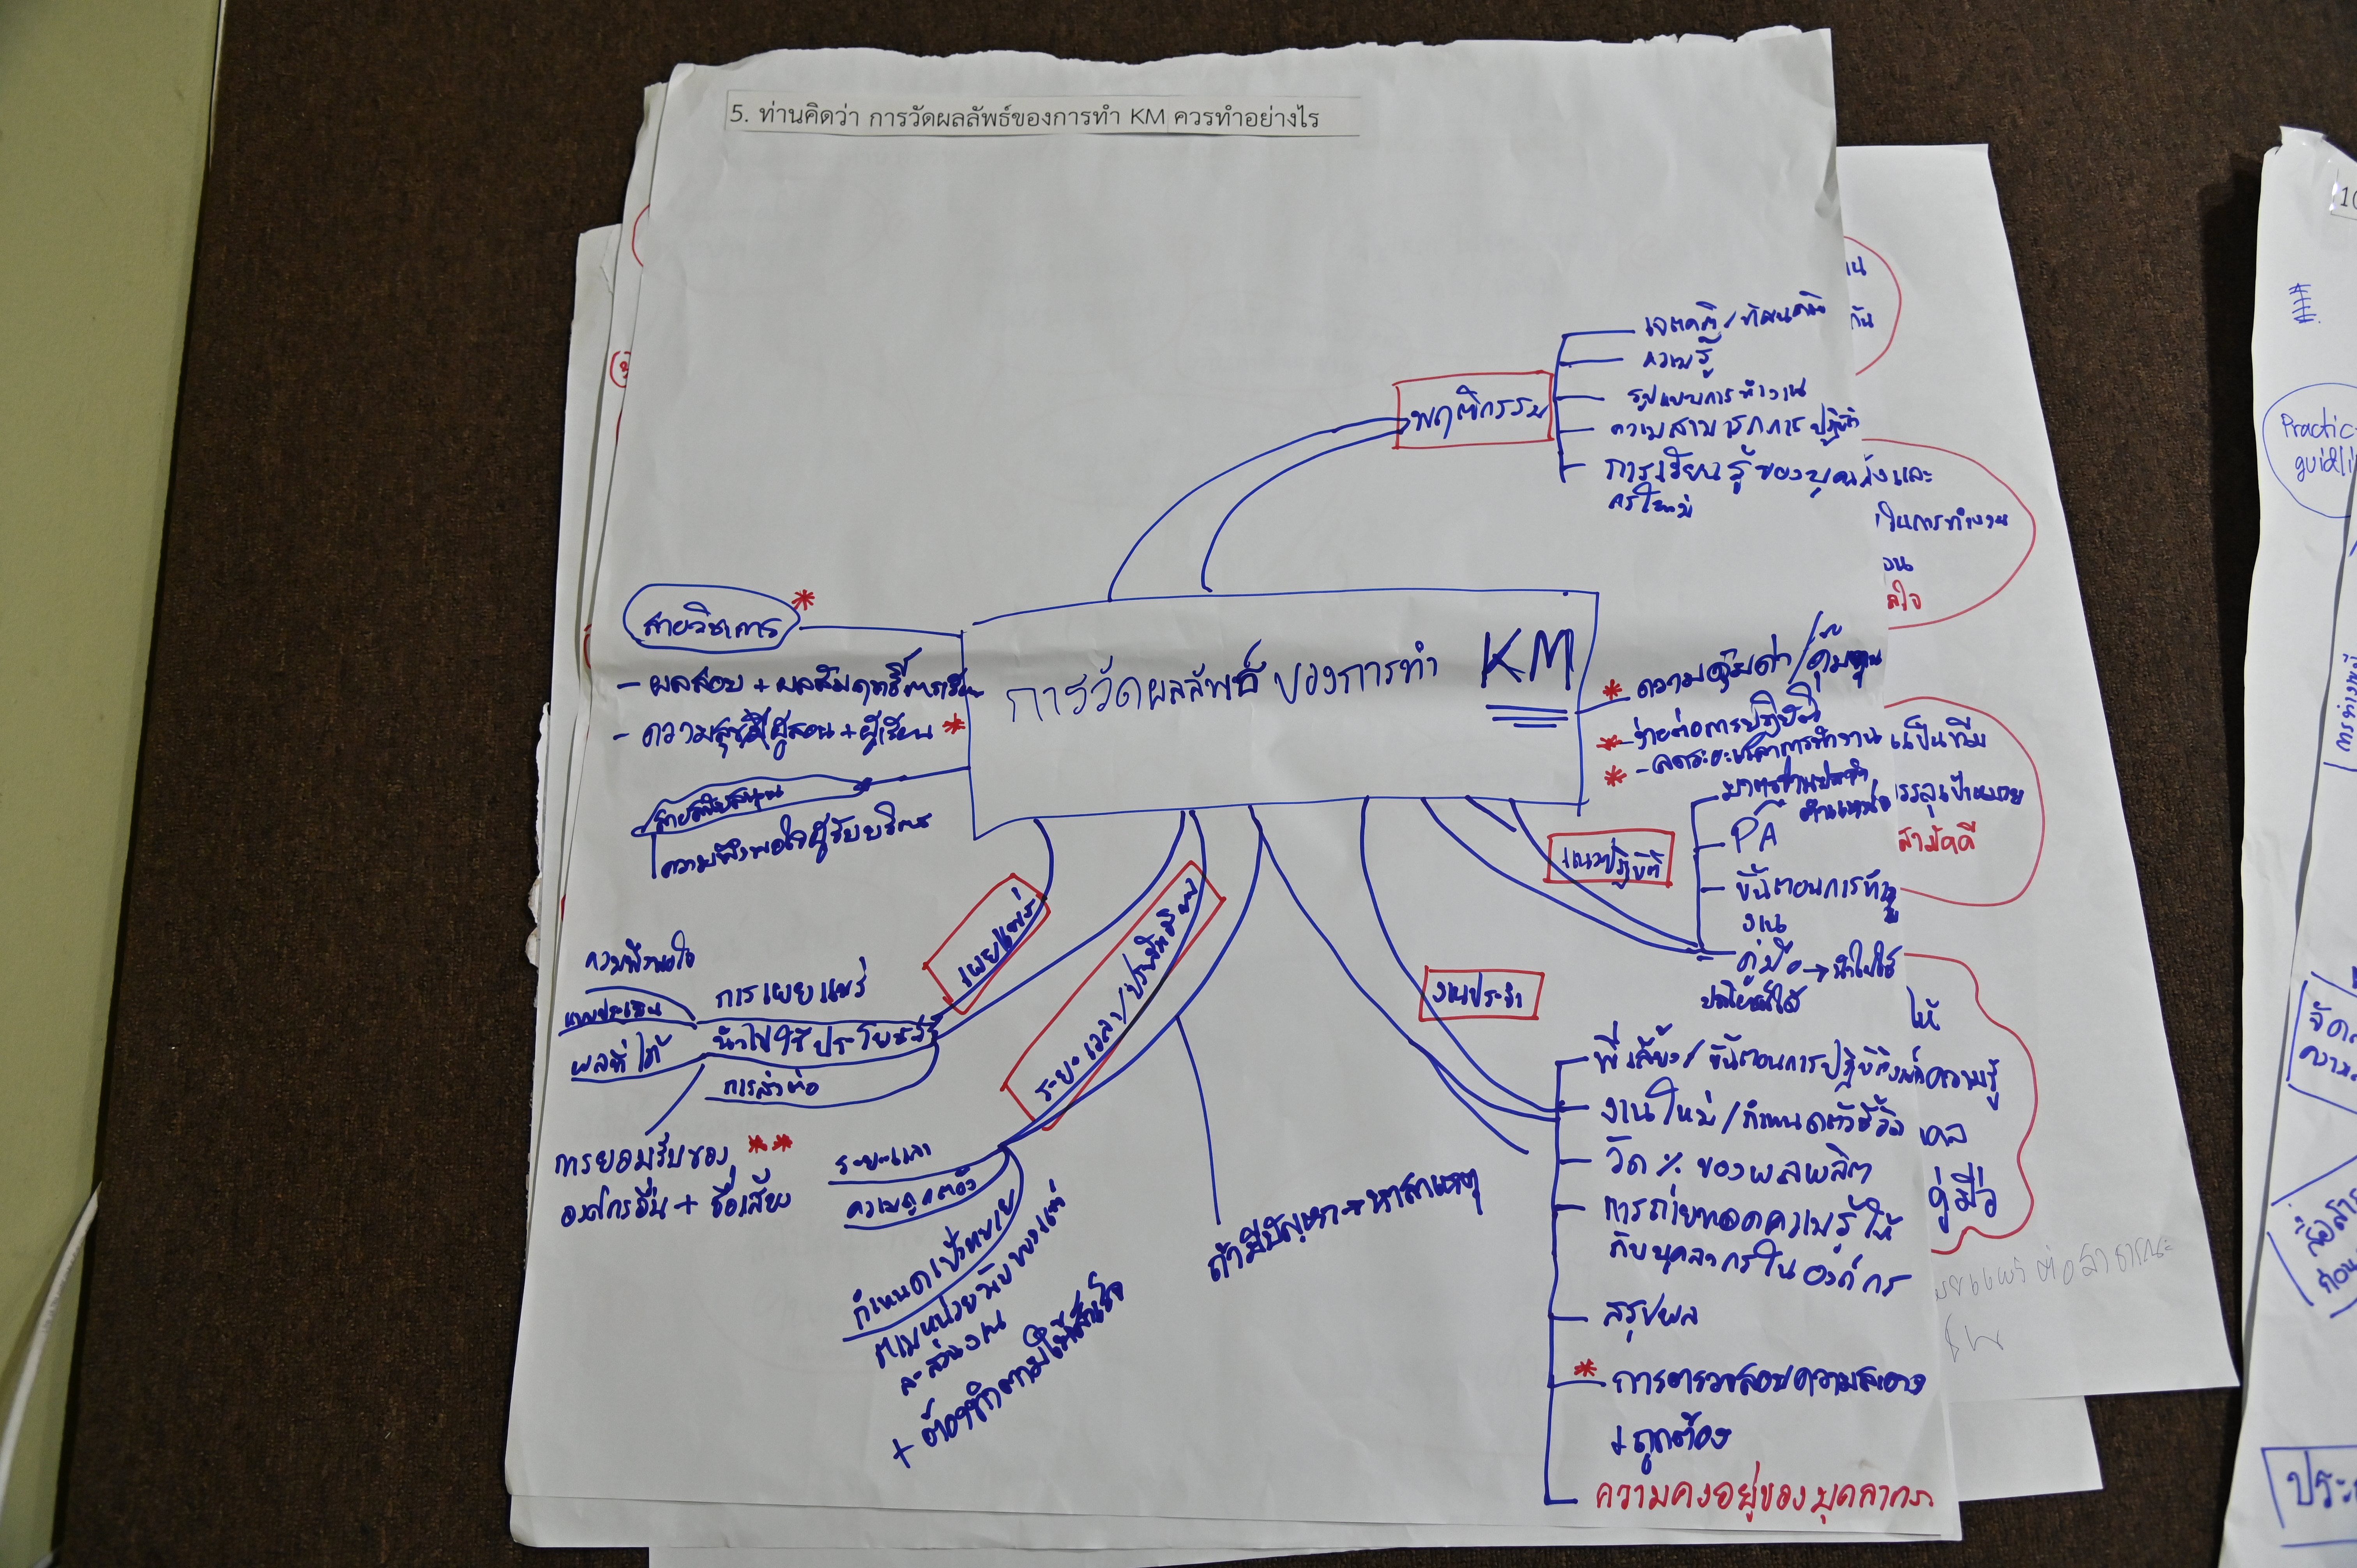 5. ท่านคิดว่า การวัดผลลัพธ์ของการทำ KM ควรทำอย่างไร
พฤติกรรม
เจตคติ/ทัศนคติ
ความรู้
รูปแบบการทำงาน
ความสามารถการปฏิบัติ
การเรียนรู้ของบุคคลัง และ
การวัดผลลัพธ์ของการทำ KM
สายวิชาการ *
- ผลสอบ + ผลสัมฤทธิ์การเรียน
- ความสุขผู้สอน + ผู้เรียน *
สายสนับสนุน
ความพึงพอใจผู้รับบริการ
* ความคุ้มค่า/คุ้มทุน
* ง่ายต่อการปฏิบัติ
* - ลดระยะเวลาการทำงาน
แนวปฏิบัติ
มาตรฐานประจำ
ตำแหน่ง
PA
ขั้นตอนการทำ
งาน
คู่มือ → นำไปใช้
ประโยชน์ได้
เผยแพร่
ความพึงพอใจ
แบบประเมิน
ผลที่ได้
การเผยแพร่
นำไปใช้ประโยชน์
การส่งต่อ
การยอมรับของ **
องค์กรอื่น + ชื่อเสียง
ระยะเวลา/
ระยะเวลา
ความถูกต้อง
กำหนดเป้าหมาย
ตามหน่วย
ถ้ามีปัญหา → หาสาเหตุ
งานประจำ
พี่เลี้ยง/ขั้นตอนการปฏิบัติงาน
งานใหม่/กำหนดตัวชี้วัด
วัด % ของผลผลิต
การถ่ายทอดความรู้ให้
กับบุคลากรในองค์กร
สรุปผล
* การตรวจสอบความ
ถูกต้อง
ความคงอยู่ของบุคลากร
ในการทำงาน
เป็นทีม
บรรลุเป้าหมาย
สามัคคี
ให้
ความรู้
คู่มือ
Practic
guidli